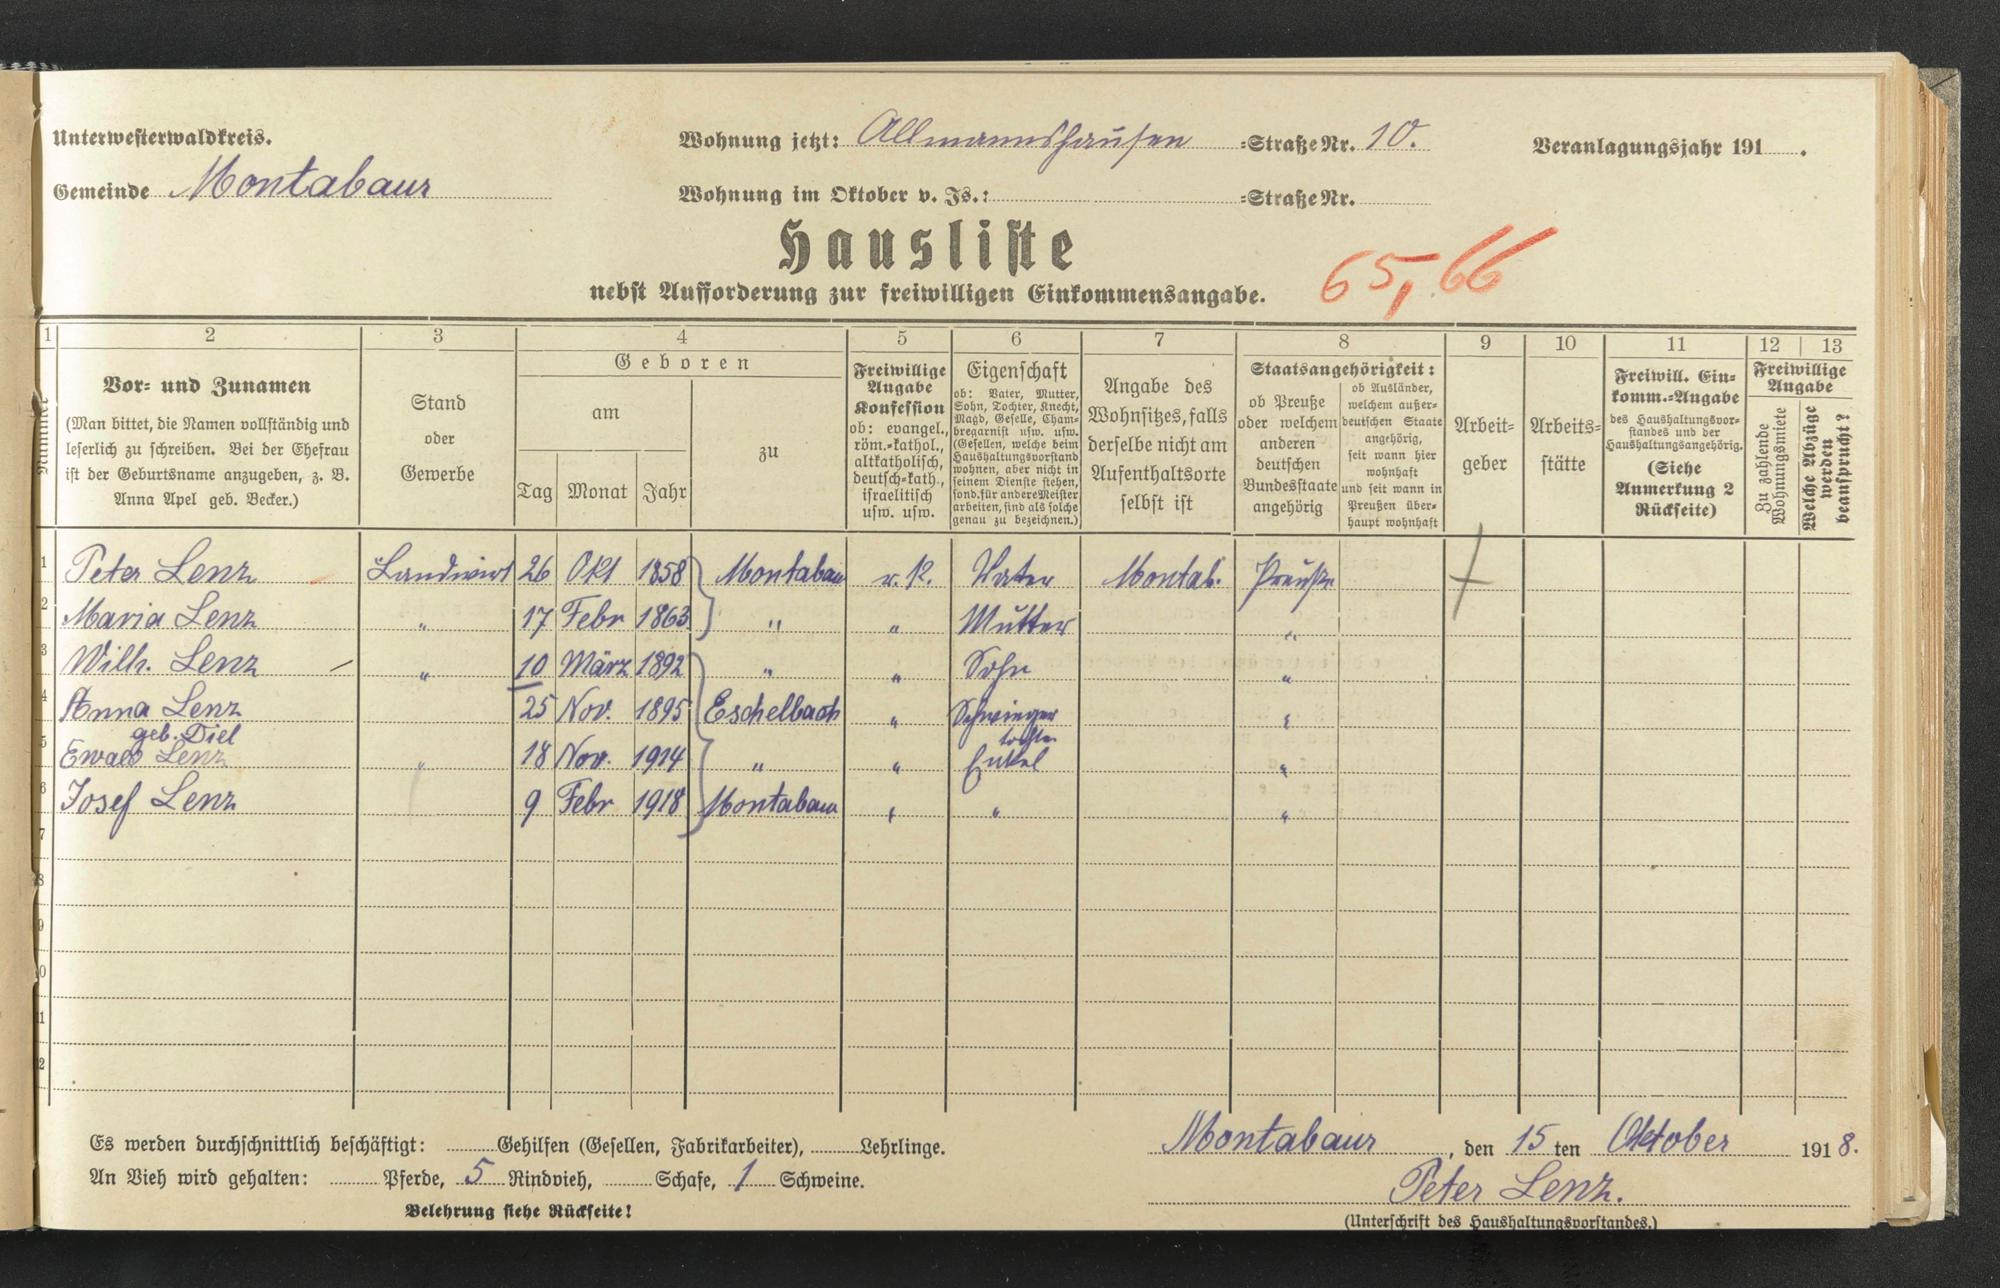 Unterwesterwaldkreis.
Wohnung jetzt: Allmannshausen =Straße Nr. 10.
Veranlagungsjahr 191 .
Gemeinde Montabaur
Wohnung im Oktober v. Js.: =Straße Nr.
Hausliste
nebst Aufforderung zur freiwilligen Einkommensangabe.
65, 66
1 2 3 4 5 6 7 8 9 10 11 12 13
Nummer
Vor= und Zunamen
(Man bittet, die Namen vollständig und
leserlich zu schreiben. Bei der Ehefrau
ist der Geburtsname anzugeben, z. B.
Anna Apel geb. Becker.)
Stand
oder
Gewerbe
Geboren
am
Tag Monat Jahr
zu
Freiwillige
Angabe
Konfession
ob: evangel.,
röm.=kathol.,
altkatholisch,
deutsch=kath.,
israelitisch
usw. usw.
Eigenschaft
ob: Vater, Mutter,
Sohn, Tochter, Knecht,
Magd, Geselle, Cham=
bregarnist usw. usw.
(Gesellen, welche beim
Haushaltungsvorstand
wohnen, aber nicht in
seinem Dienste stehen,
sond. für andere Meister
arbeiten, sind als solche
genau zu bezeichnen.)
Angabe des
Wohnsitzes, falls
derselbe nicht am
Aufenthaltsorte
selbst ist
Staatsangehörigkeit:
ob Preuße
oder welchem
anderen
deutschen
Bundesstaate
angehörig
ob Ausländer,
welchem außer=
deutschen Staate
angehörig,
seit wann hier
wohnhaft
und seit wann in
Preußen über=
haupt wohnhaft
Arbeit=
geber
Arbeits=
stätte
Freiwill. Ein=
komm.=Angabe
des Haushaltungsvor=
standes und der
Haushaltungsangehörig.
(Siehe
Anmerkung 2
Rückseite)
Freiwillige
Angabe
Zu zahlende
Wohnungsmiete
Welche Abzüge
werden
beansprucht?
1 Peter Lenz Landwirt 26 Okt 1858 Montabau r. K. Vater Montab. Preuße
2 Maria Lenz " 17 Febr 1863 " " Mutter "
3 Wilh. Lenz " 10 März 1892 " " Sohn "
4 Anna Lenz 25 Nov. 1895 Eschelbach " Schwieger "
geb. Diel tochter
5 Ewald Lenz " 18 Nov. 1914 " " Enkel "
6 Josef Lenz 9 Febr 1918 Montabaur " " "
7
8
9
0
1
2
Es werden durchschnittlich beschäftigt: Gehilfen (Gesellen, Fabrikarbeiter), Lehrlinge.
An Vieh wird gehalten: Pferde, 5 Rindvieh, Schafe, 1 Schweine.
Belehrung siehe Rückseite!
Montabaur, den 15 ten Oktober 1918.
Peter Lenz.
(Unterschrift des Haushaltungsvorstandes.)